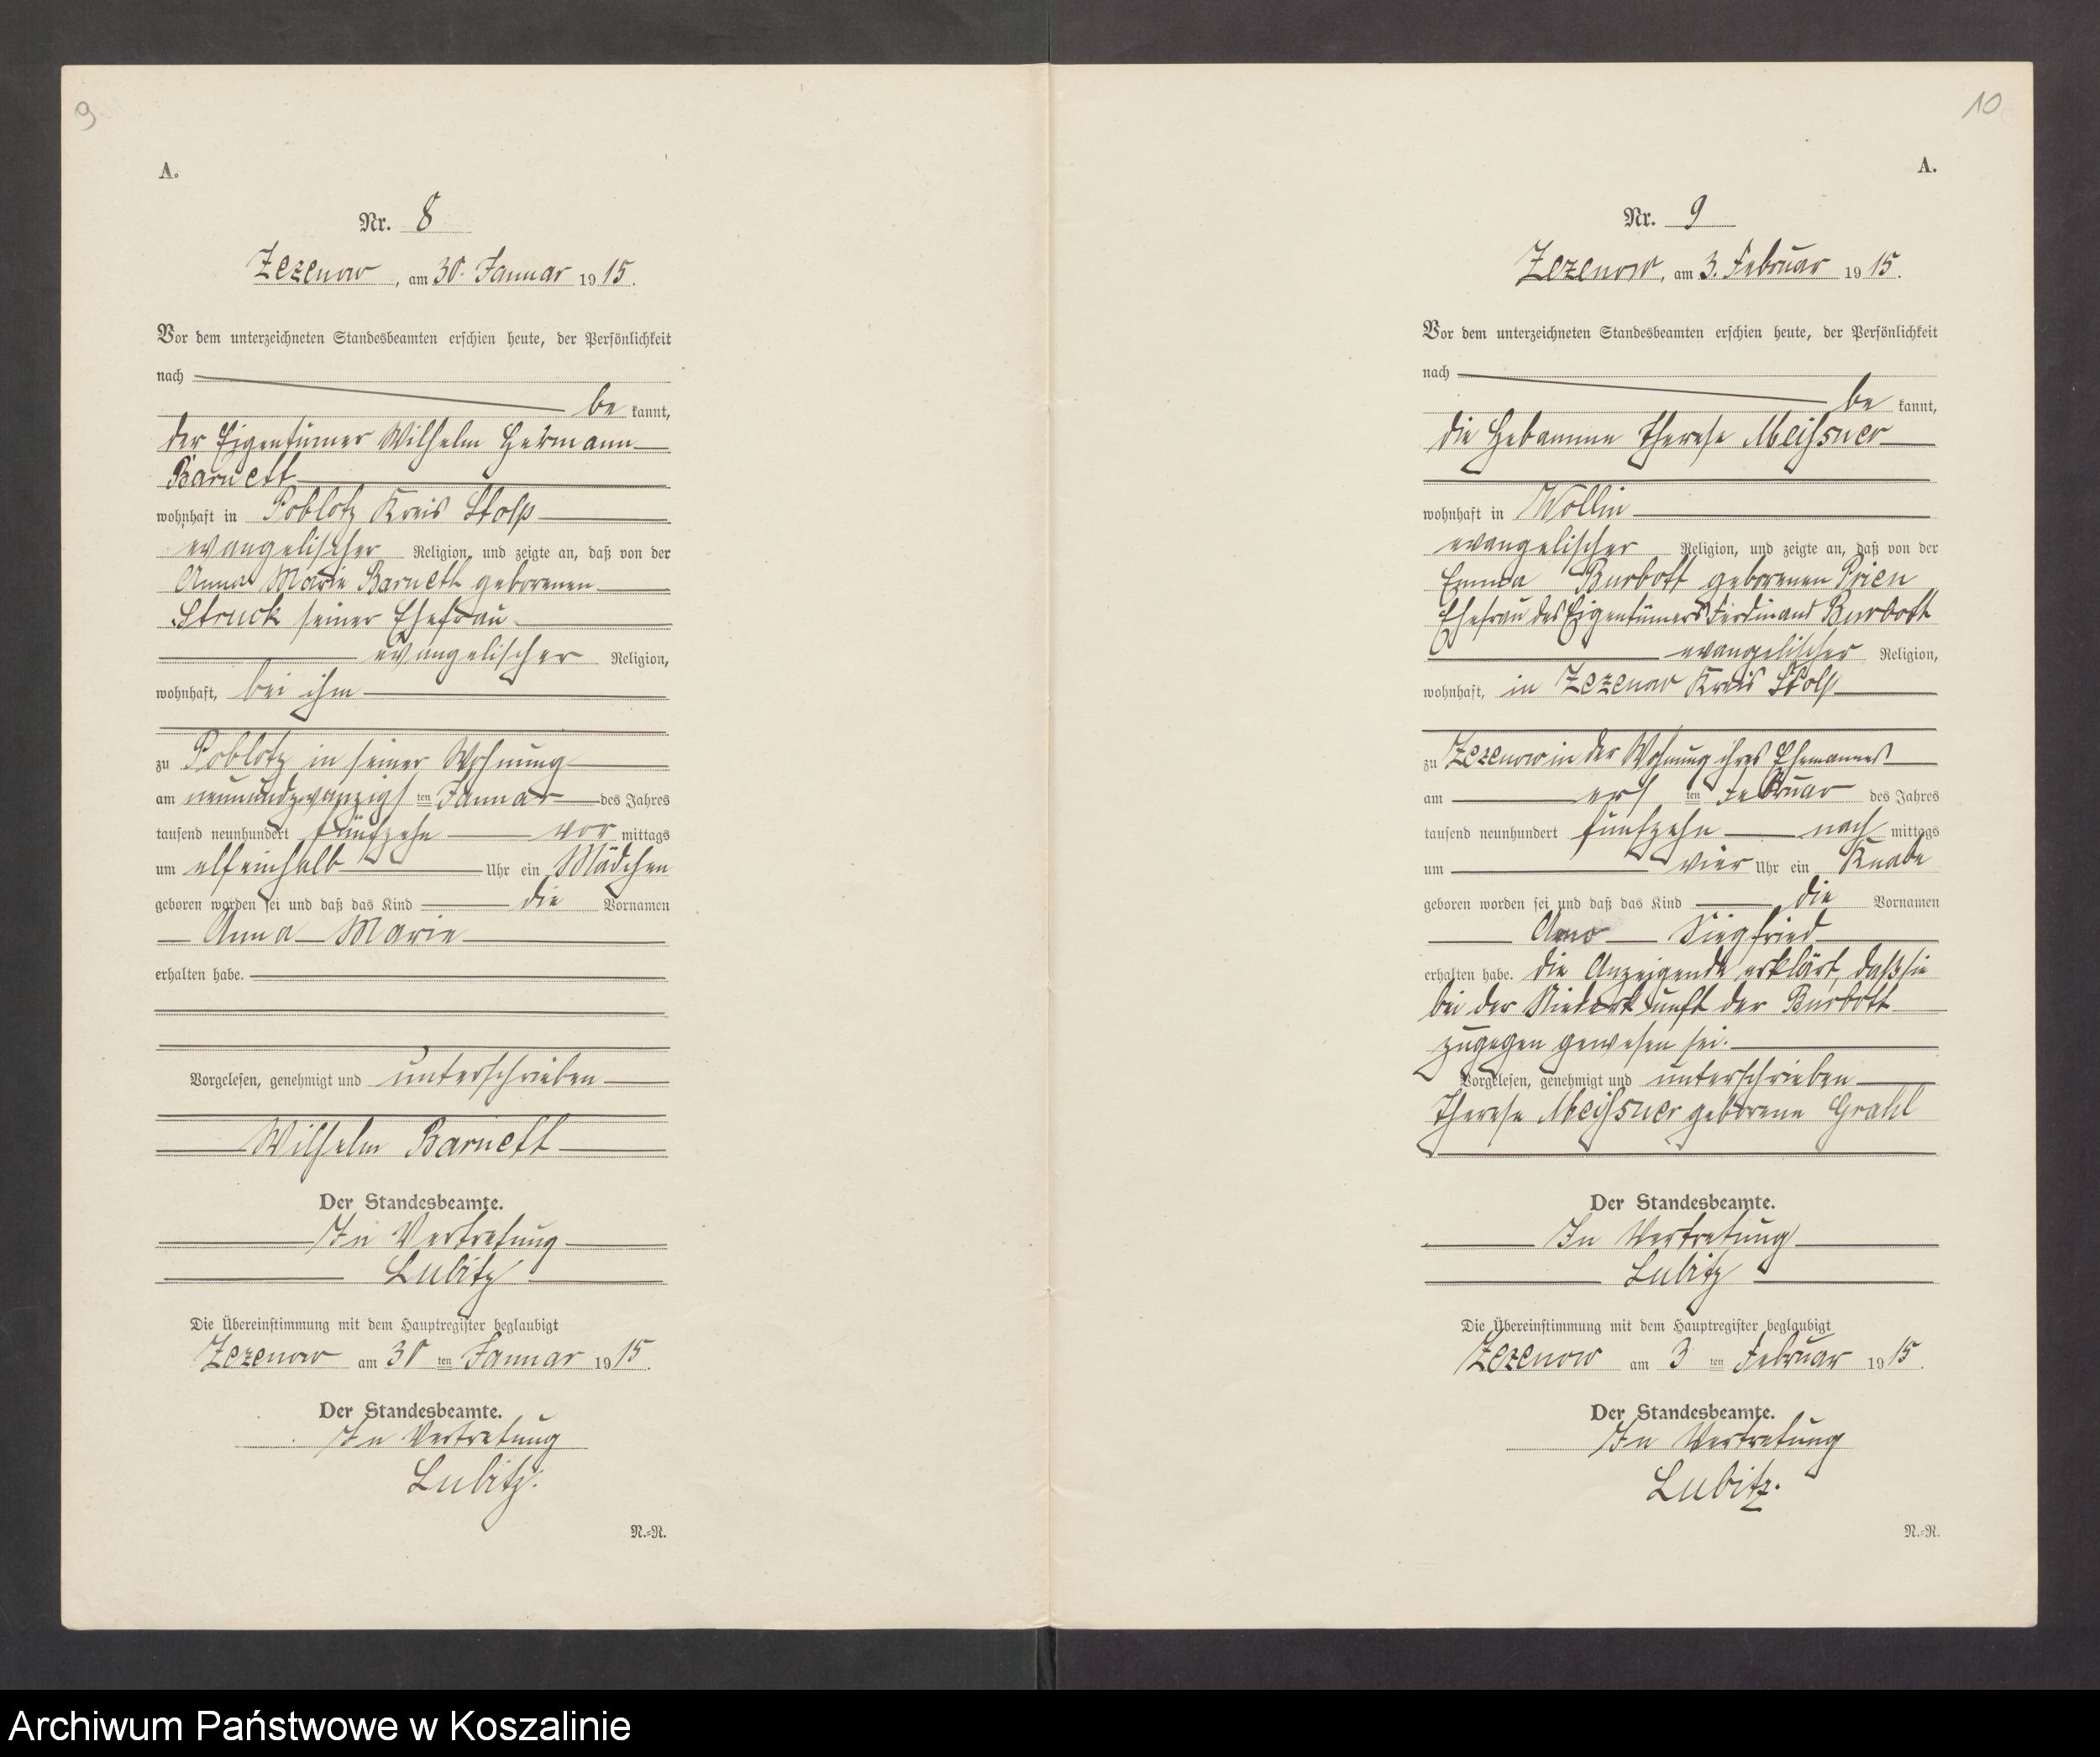 9
A.
Nr. 8
Zezenow, am 30. Januar 1915.
Vor dem unterzeichneten Standesbeamten erschien heute, der Persönlichkeit
nach
be kannt,
der Eigentümer Wilhelm Hermann
Barnett
wohnhaft in Poblotz Kreis Stolp
evangelischer Religion, und zeigte an, daß von der
Anna Marie Barnett geborenen
Struck seiner Ehefrau
evangelischer Religion,
wohnhaft, bei ihm
zu Poblotz in seiner Wohnung
am neunundzwanzigsten Januar des Jahres
tausend neunhundert fünfzehn vor mittags
um elfeinhalb Uhr ein Mädchen
geboren worden sei und daß das Kind die Vornamen
Anna Marie
erhalten habe.
Vorgelesen, genehmigt und unterschrieben
Wilhelm Barnett
Der Standesbeamte.
In Vertretung
Lubitz
Die Übereinstimmung mit dem Hauptregister beglaubigt
Zezenow am 30 ten Januar 1915.
Der Standesbeamte.
In Vertretung
Lubitz.
N.-R.
10
A.
Nr. 9
Zezenow, am 3. Februar 1915.
Vor dem unterzeichneten Standesbeamten erschien heute, der Persönlichkeit
nach
be kannt,
die Hebamme Therese Meißner
wohnhaft in Wollin
evangelischer Religion, und zeigte an, daß von der
Emma Burbott geborenen Prien
Ehefrau des Eigentümers Ferdinand Burbott
evangelischer Religion,
wohnhaft, in Zezenow Kreis Stolp
zu Zezenow in der Wohnung ihres Ehemannes
am ersten Februar des Jahres
tausend neunhundert fünfzehn nach mittags
um vier Uhr ein Knabe
geboren worden sei und daß das Kind die Vornamen
Arno Siegfried
erhalten habe. Die Anzeigende erklärt, daß sie
bei der Niederkunft der Burbott
zugegen gewesen sei.
Vorgelesen, genehmigt und unterschrieben
Therese Meißner geborene Grahl
Der Standesbeamte.
In Vertretung
Lubitz
Die Übereinstimmung mit dem Hauptregister beglaubigt
Zezenow am 3 ten Februar 1915.
Der Standesbeamte.
In Vertretung
Lubitz.
N.-R.
Archiwum Państwowe w Koszalinie